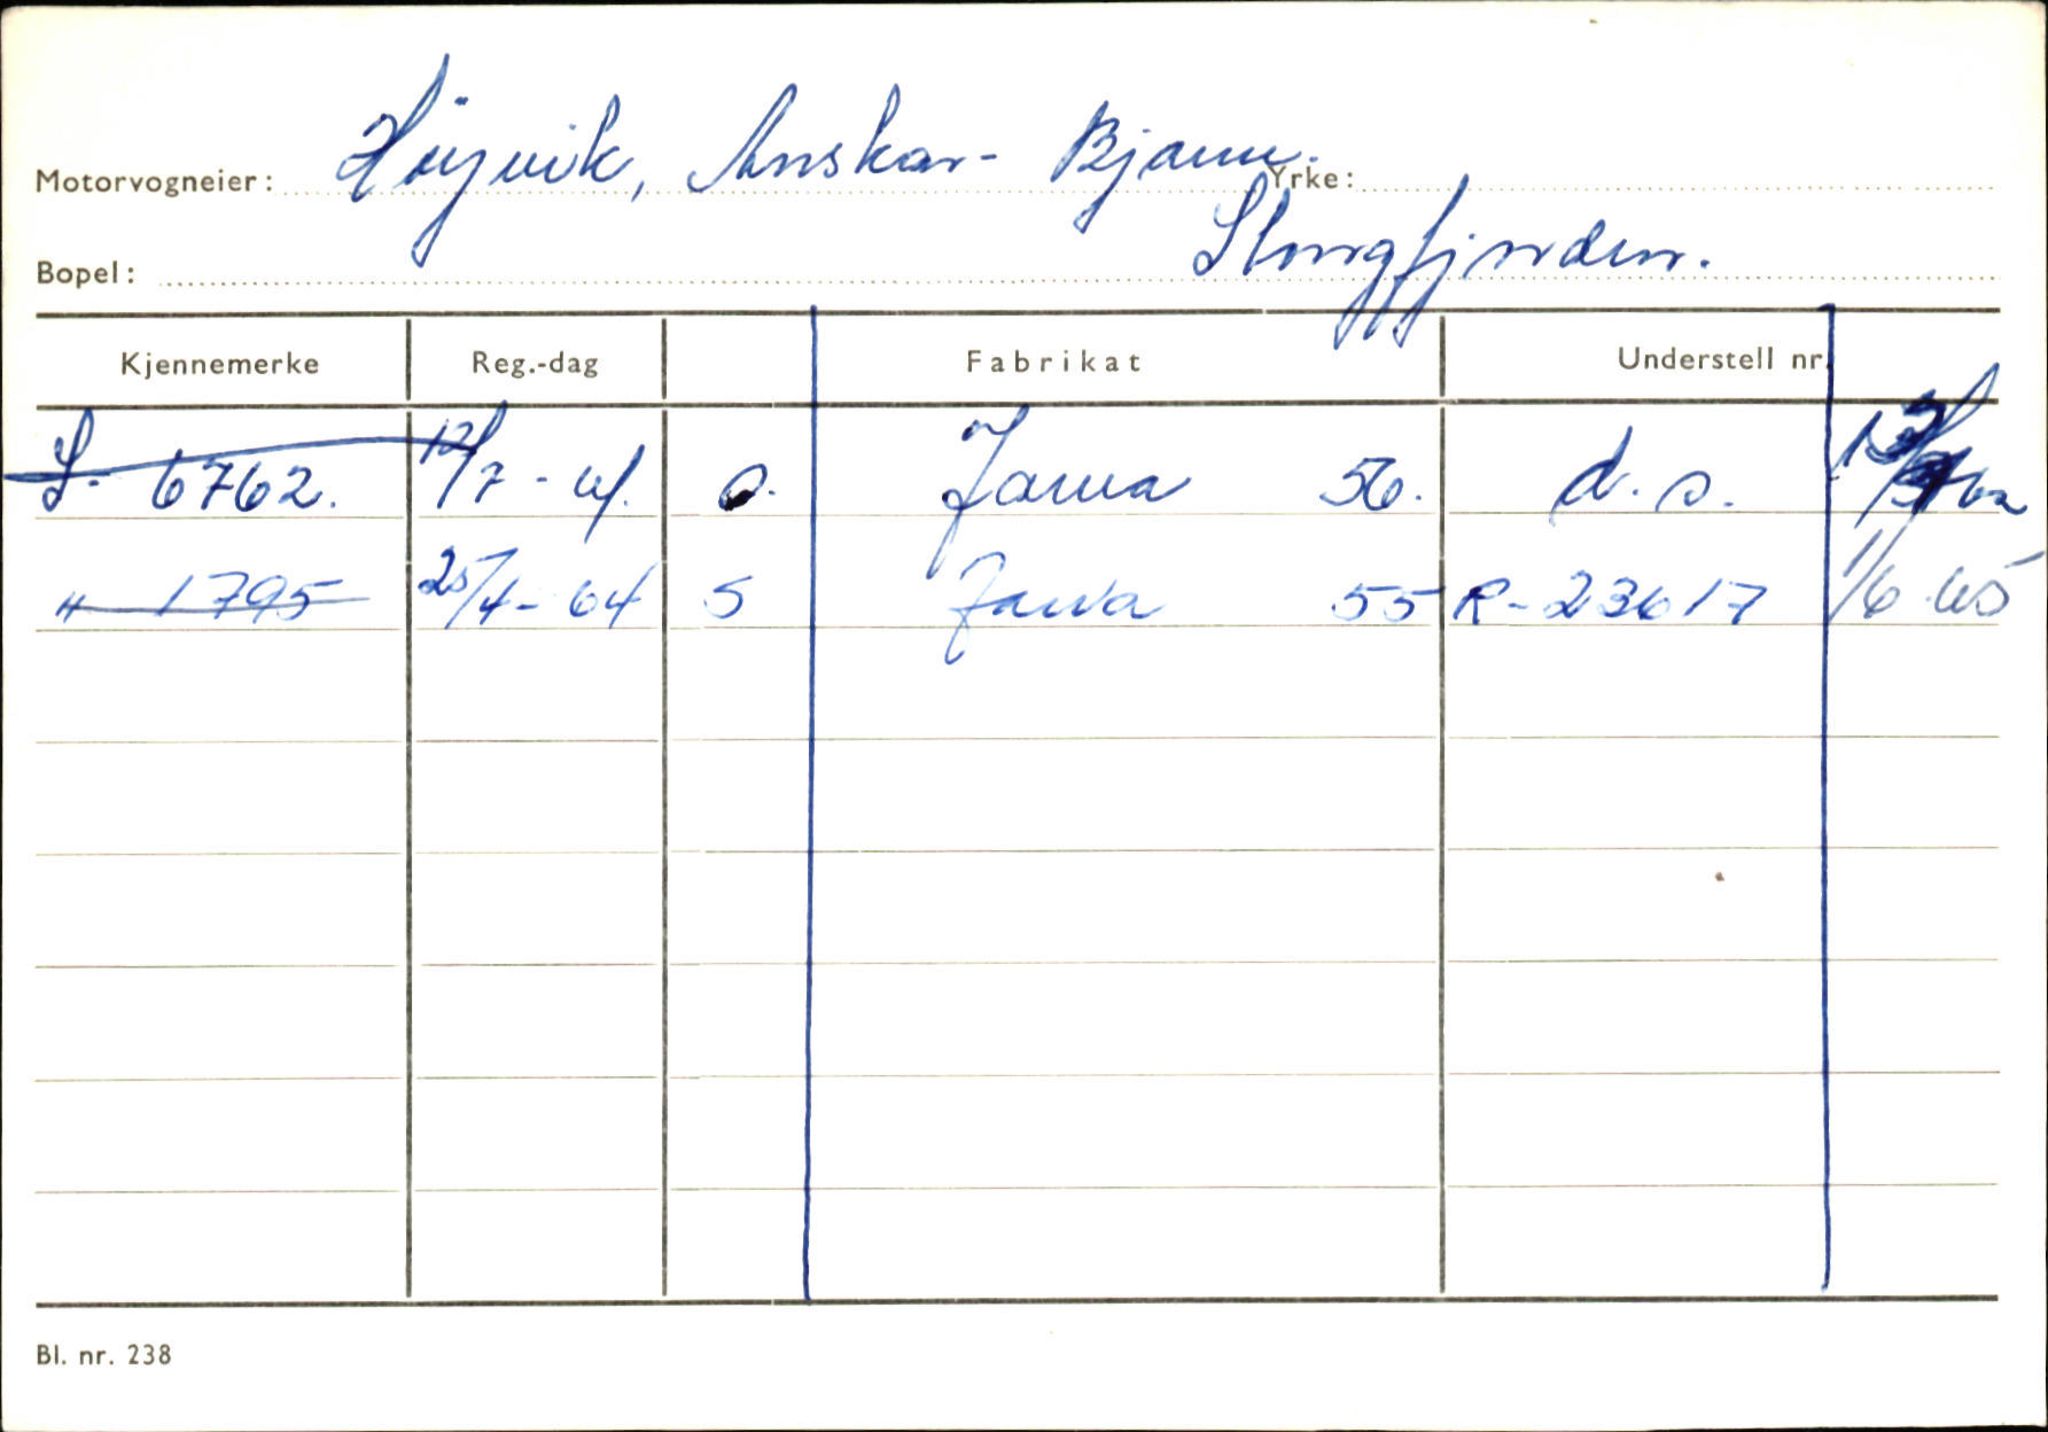 Motorvogneier: Høyvik, Anskar- Bjarne. Yrke:
Bopel: Stongfjorden.
Kjennemerke Reg.-dag Fabrikat Understell nr.
S- 6762. 12/7 - 61. o. Jawa 56. d. o.
" 1795 25/4 - 64 S Jawa 55 R-23617 1/6-65
Bl. nr. 238